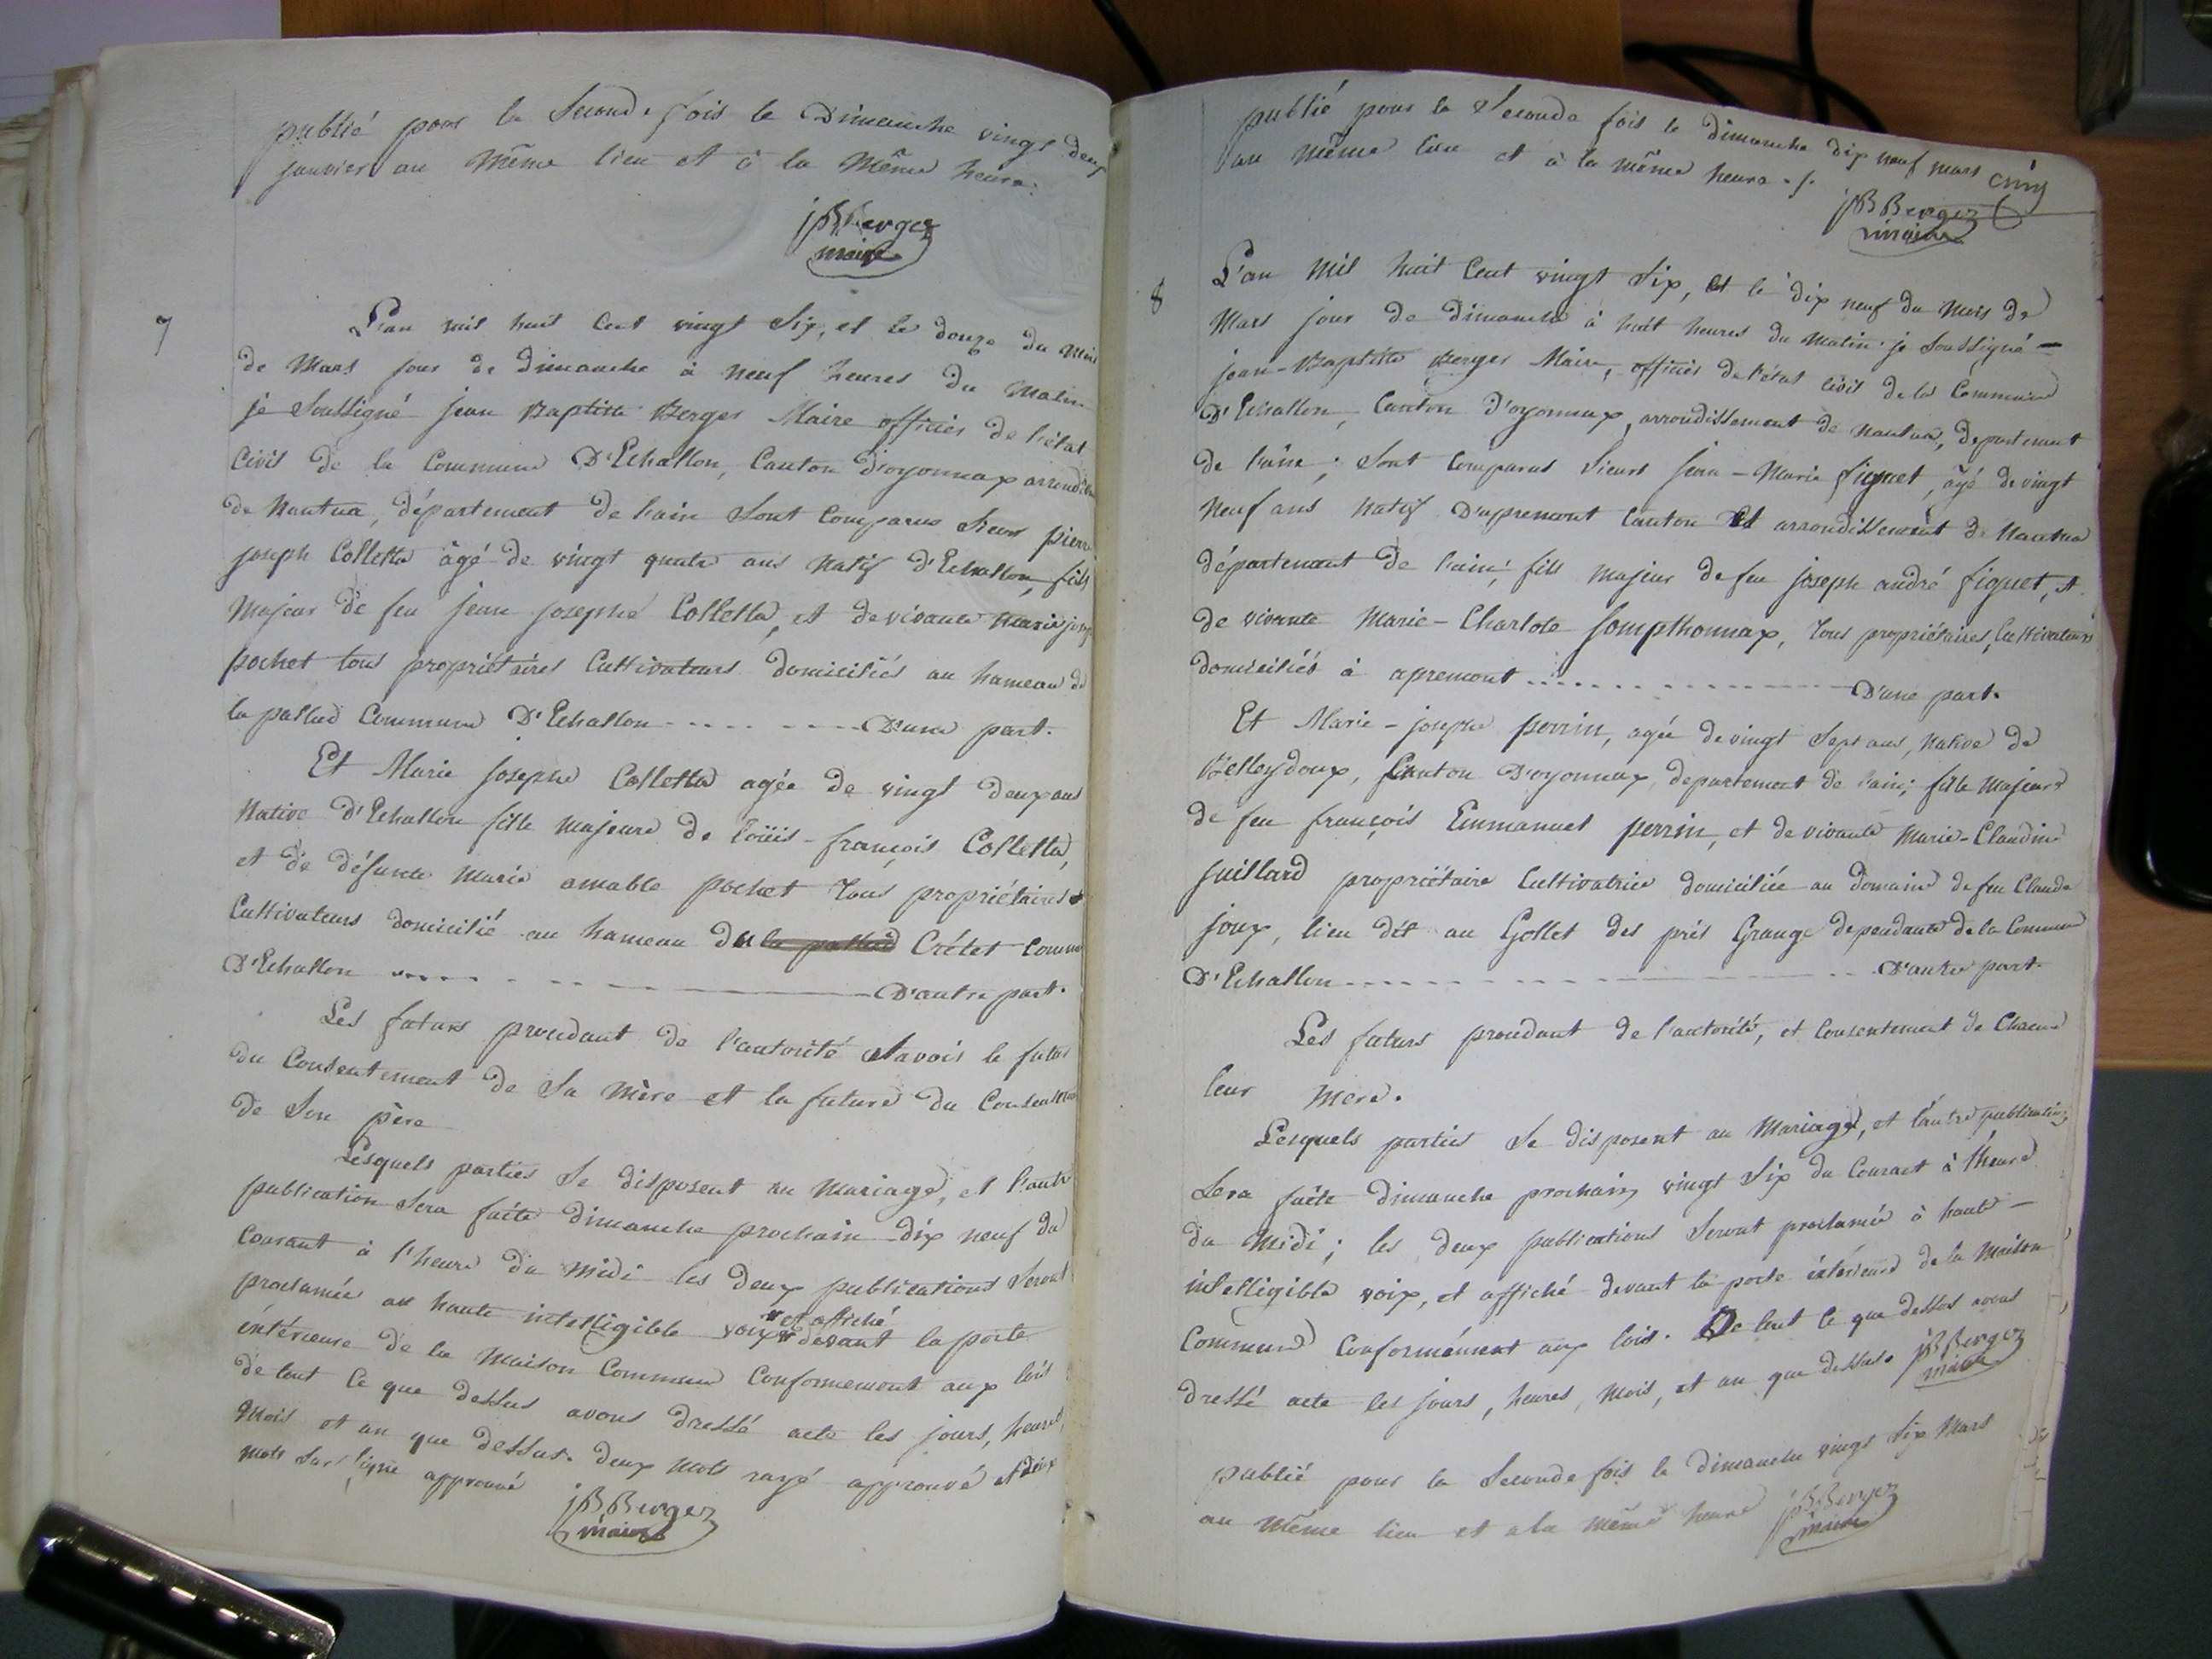 publié pour la Seconde fois le Dimanche vingt deux
janvier au même lieu et à la même heure.
jBBerger
maire
7
L'an mil huit Cent vingt Six, et le douze du mois
de Mars jour de Dimanche à neuf heures du matin
je Soussigné jean Baptiste Berger Maire officier de l'état
Civil de la Commune D'Echallon, Canton d'oyonnax
de Nantua, département de l'ain Sont Comparus Sieur pierre
joseph Colletta âgé de vingt quatre ans natif d'Echallon, fils
Majeur de feu jean josephe Colletta, et de vivante marie
pochet tous propriétaires Cultivateurs domiciliés au hameau de
la pallud Commune D'Echallon - - - - - - - D'une part.
Et Marie Josephe Colletta agée de vingt deux ans
Native d'Echallon fille majeure de loüis-françois Colletta,
et de défunte Marie amable pochet Tous propriétaires
Cultivateurs domicilié au hameau du la pallud Crétet
D'Echallon - - - - - - D'autre part.
Les futurs procédant de l'autorité Savoir le futur
du Consentement de Sa Mère et la future du
de Son père
Lesquels parties Se disposent au Mariage, et l'autre
publication Sera faite dimanche prochain dix neuf du
Courant à l'heure du Midi les deux publications Seront
proclamée au haute intelligible voix et affiché devant la porte
intérieure de la Maison Commune Conformement aux lois
de tout Ce que dessus avons dressé acte les jours, heures,
Mois et an que dessus. deux mots rayé approuvé et deux
mots Sur ligne approuvé
jBBerger
maire
publié pour la Seconde fois le dimanche dix neuf mars
au même lieu et à la même heure ./.
cinq
jBBerger
maire
8
L'an Mil huit Cent vingt Six, et le dix neuf du Mois de
Mars jour de dimanche à huit heures du Matin je Soussigné -
jean-Baptiste Berger Maire, officier de l'état Civil de la Commune
D'Echallon, Canton d'oyonnax, arrondissement de Nantua, departement
de l'ain; Sont Comparus Sieurs Jean-Marie figuet, âgé de vingt
Neuf ans Natif D'apremont Canton et arrondissement de Nantua
département de l'ain; fils majeur de feu joseph andré figuet, et
de vivante Marie-Charlote Sompthonnax, Tous propriétaires, Cultivateurs
domiciliés à apremont - - - - - - D'une part.
Et Marie-josephe perrin, agée de vingt Sept ans, Native de
Belleydoux, Canton D'oyonnax, departement de l'ain; fille Majeure
de feu françois Emmanuel perrin, et de vivante Marie-Claudine
juillard propriétaire Cultivatrice domiciliée au domaine de feu Claude
joux, lieu dit au Gollet des prés Grange dependante de la Commune
D'Echallon - - - - - - D'autre part.
Les futurs procédant de l'autorité, et Consentement de Chacun
leur Mere.
Lesquels parties Se disposent au Mariage, et l'autre publication
Sera faite Dimanche prochain vingt Six du Courant à l'heure
du Midi; les deux publications Seront proclamée à haute -
intelligible voix, et affiché devant la porte intérieure de la Maison
Commune Conformément aux lois. De tout Ce que dessus avons
dressé acte les jours, heures, Mois, et an que dessus. jBBerger
maire
publié pour la Seconde fois le dimanche vingt Six Mars
au même lieu et a la même heure jBBerger
maire